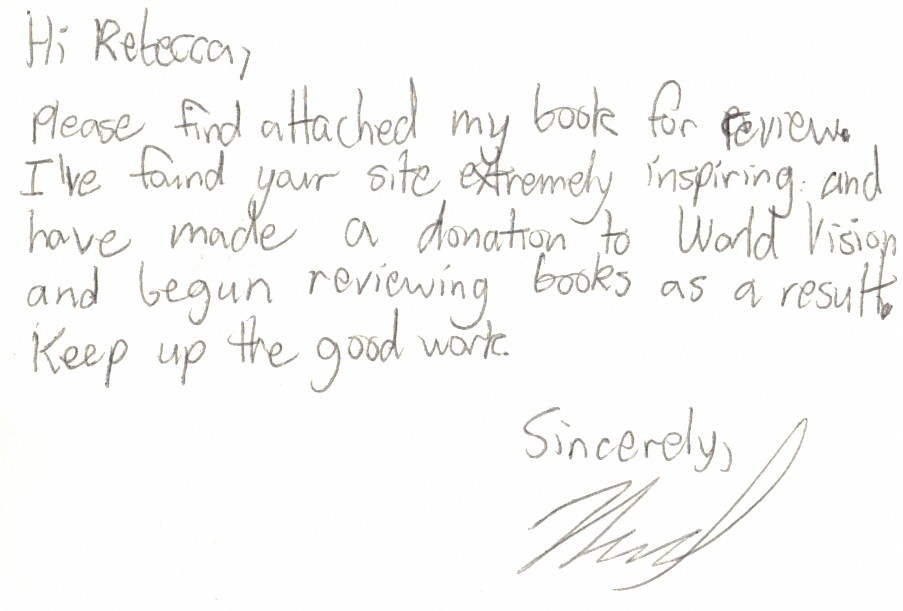 Hi Rebecca,
Please find attached my book for review.
I've found your site extremely inspiring and
have made a donation to World Vision
and begun reviewing books as a result.
Keep up the good work.
Sincerely,